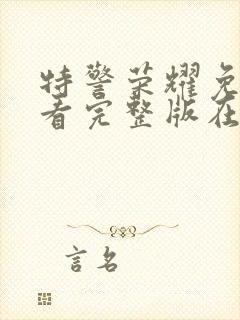 特警荣耀免
看完整版在
言名